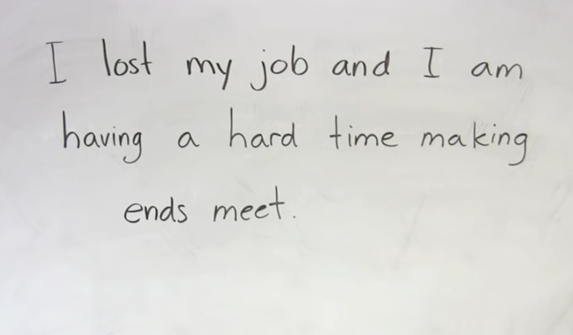 I lost my job and I am
having a hard time making
ends meet.